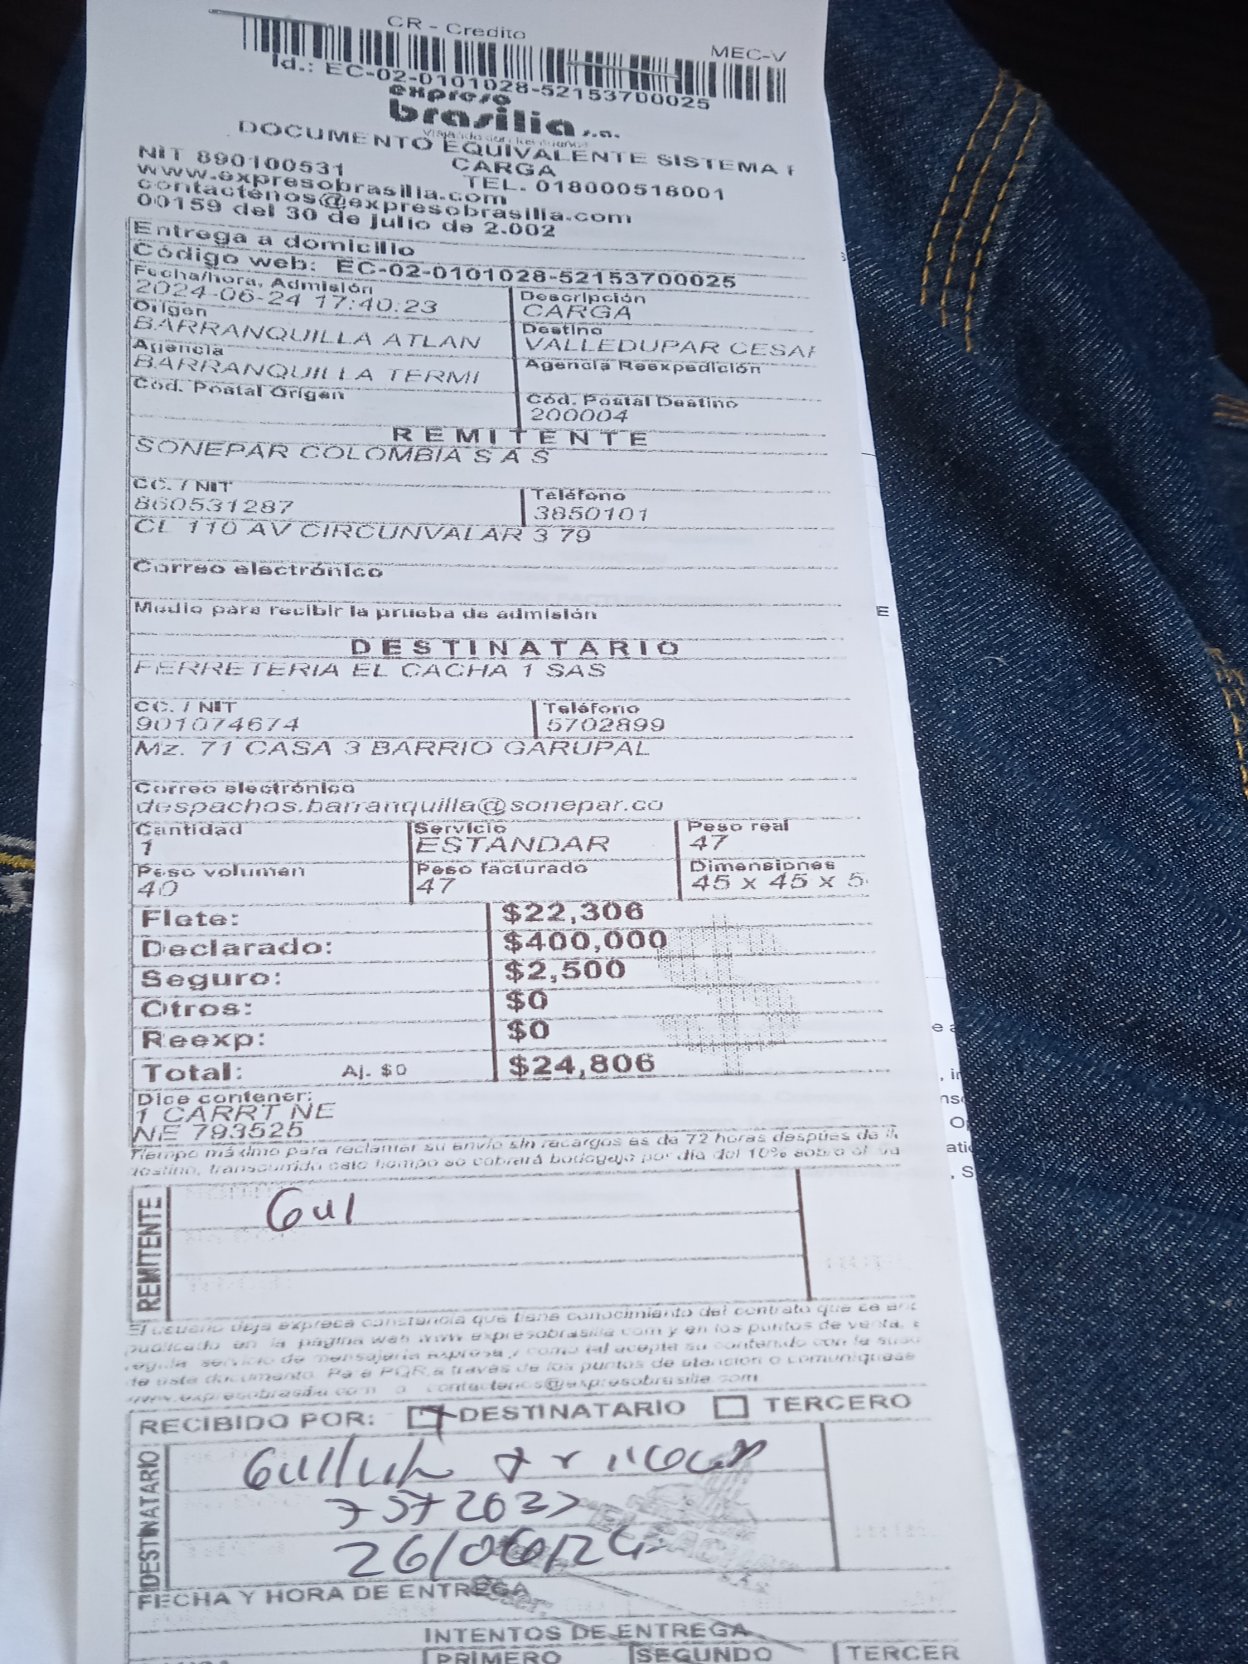 CR - Credito
MEC-V
Id.: EC-02-0101028-52153700025
expreso
brasilia s.a.
DOCUMENTO EQUIVALENTE SISTEMA
CARGA
NIT 890100531
TEL. 018000518001
www.expresobrasilia.com
contactenos@expresobrasilia.com
00159 del 30 de julio de 2.002
Entrega a domicilio
Código web: EC-02-0101028-52153700025
Fecha/hora, Admisión
2024-06-24 17:40:23
Descripción
CARGA
Origen
BARRANQUILLA ATLAN
Destino
VALLEDUPAR CESAR
Agencia
BARRANQUILLA TERMI
Agencia Reexpedición
Cod. Postal Origen
Cód. Postal Destino
200004
REMITENTE
SONEPAR COLOMBIA S A S
CC. / NIT
860531287
Teléfono
3850101
CL 110 AV CIRCUNVALAR 3 79
Correo electrónico
Medio para recibir la prueba de admisión
DESTINATARIO
FERRETERIA EL CACHA 1 SAS
CC. / NIT
901074674
Teléfono
5702899
Mz. 71 CASA 3 BARRIO GARUPAL
Correo electrónico
despachos.barranquilla@sonepar.co
Cantidad
1
Servicio
ESTANDAR
Peso real
47
Peso volumen
40
Peso facturado
47
Dimensiones
45 x 45 x 5
Flete: $22,306
Declarado: $400,000
Seguro: $2,500
Otros: $0
Reexp: $0
Total: Aj. $0 $24,806
Dice contener:
1 CARRT NE
NE 793525
Tiempo máximo para reclamar su envío sin recargos es de 72 horas después de
destino, transcurrido este tiempo se cobrará bodegaje por día del 10% sobre el va
REMITENTE
El usuario deja expresa constancia que tiene conocimiento del contrato que se enc
publicado en la página web www.expresobrasilia.com y en los puntos de venta,
servicio de mensajería expresa y como tal acepta su contenido con la susc
de este documento. Para PQR a través de los puntos de atención o comuníquese
www.expresobrasilia.com o contactenos@expresobrasilia.com
RECIBIDO POR: DESTINATARIO TERCERO
DESTINATARIO
26/06/24
FECHA Y HORA DE ENTREGA
INTENTOS DE ENTREGA
PRIMERO SEGUNDO TERCER